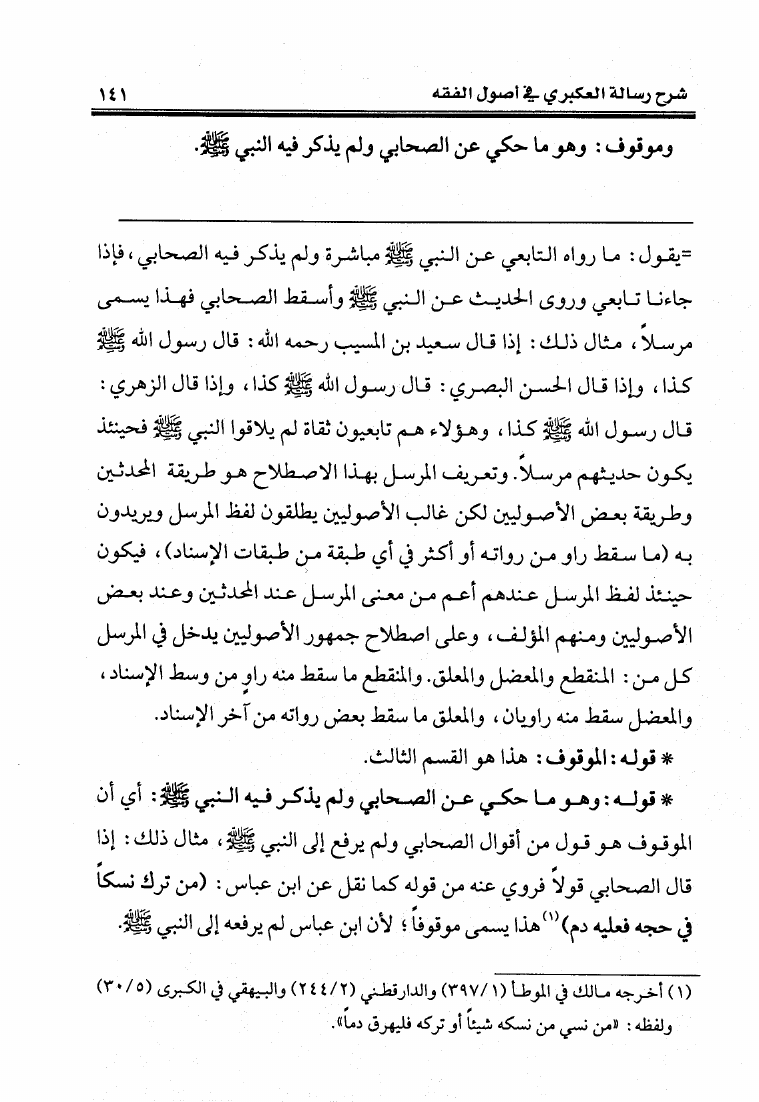 شرح رسالة العكبري في أصول الفقه ١٤١
وموقوف: وهو ما حكي عن الصحابي ولم يذكر فيه النبي ﷺ.
=يقول: ما رواه التابعي عن النبي ﷺ مباشرة ولم يذكر فيه الصحابي، فإذا
جاءنا تابعي وروى الحديث عن النبي ﷺ وأسقط الصحابي فهذا يسمى
مرسلاً، مثال ذلك: إذا قال سعيد بن المسيب رحمه الله: قال رسول الله ﷺ
كذا، وإذا قال الحسن البصري: قال رسول الله ﷺ كذا، وإذا قال الزهري:
قال رسول الله ﷺ كذا، وهؤلاء هم تابعيون ثقاة لم يلاقوا النبي ﷺ فحينئذ
يكون حديثهم مرسلاً. وتعريف المرسل بهذا الاصطلاح هو طريقة المحدثين
وطريقة بعض الأصوليين لكن غالب الأصوليين يطلقون لفظ المرسل ويريدون
به (ما سقط راو من رواته أو أكثر في أي طبقة من طبقات الإسناد)، فيكون
حينئذ لفظ المرسل عندهم أعم من معنى المرسل عند المحدثين وعند بعض
الأصوليين ومنهم المؤلف، وعلى اصطلاح جمهور الأصوليين يدخل في المرسل
كل من: المنقطع والمعضل والمعلق. والمنقطع ما سقط منه راوٍ من وسط الإسناد،
والمعضل سقط منه راويان، والمعلق ما سقط بعض رواته من آخر الإسناد.
* قوله: الموقوف: هذا هو القسم الثالث.
* قوله: وهو ما حكي عن الصحابي ولم يذكر فيه النبي ﷺ: أي أن
الموقوف هو قول من أقوال الصحابي ولم يرفع إلى النبي ﷺ، مثال ذلك: إذا
قال الصحابي قولاً فروي عنه من قوله كما نقل عن ابن عباس: (من ترك نسكاً
في حجه فعليه دم)(١) هذا يسمى موقوفاً؛ لأن ابن عباس لم يرفعه إلى النبي ﷺ.
(١) أخرجه مالك في الموطأ (٣٩٧/١) والدارقطني (٢٤٤/٢) والبيهقي في الكبرى (٣٠/٥)
ولفظه: «من نسي من نسكه شيئاً أو تركه فليهرق دماً».